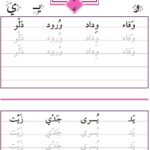 و ـیـ ي
وَفاء وِداد وُرود دَلْو
وَفاء وِداد وُرود دَلْو
يَد يُسرى جَدْي زَيْت
يَد يُسرى جَدْي زَيْت